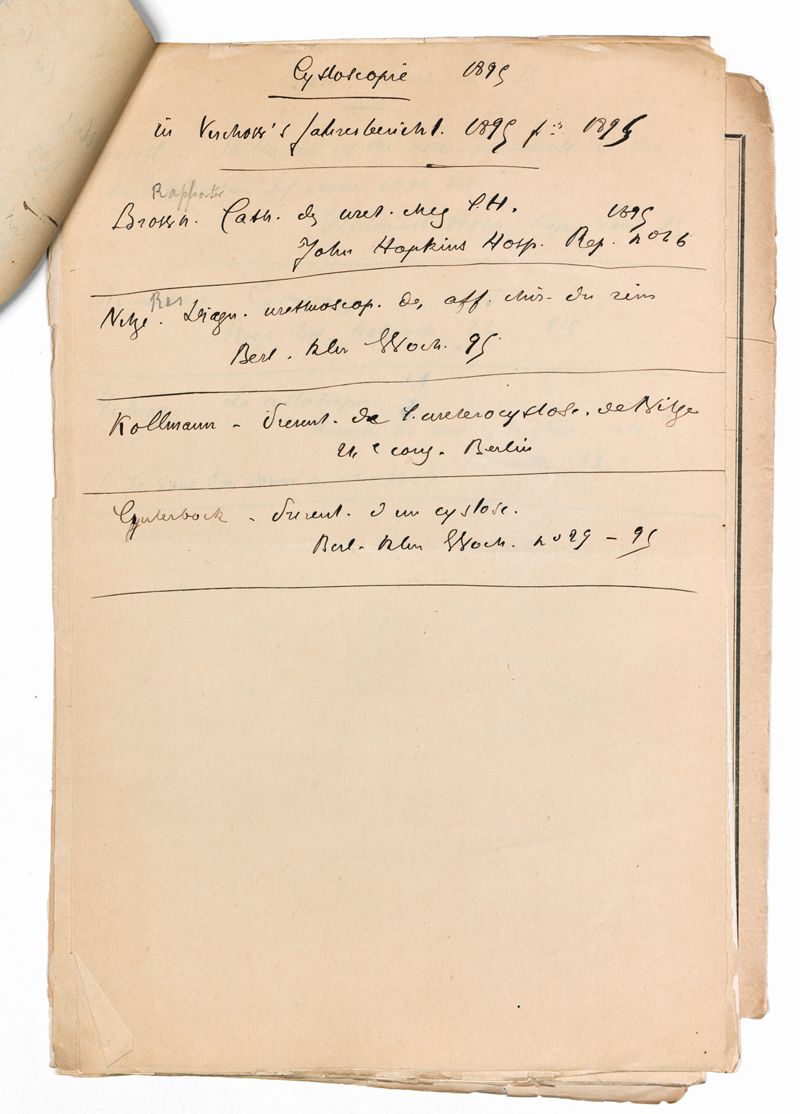 Cystoscopie 1895
in Virchow's Jahresbericht. 1895 1896
Rapporter
Brown. Cath. des uret. chez l'H. 1895
John Hopkins Hosp. Rep.
Res
Nitze. Diagn. urethroscop. des aff. chir. du rein
Berl. klin Woch. 95
Kollmann - de l'ureterocystosc. de Nitze
24e cong. Berlin
Guterbock - d'un cystosc.
Berl. klin Woch. no 29 - 95